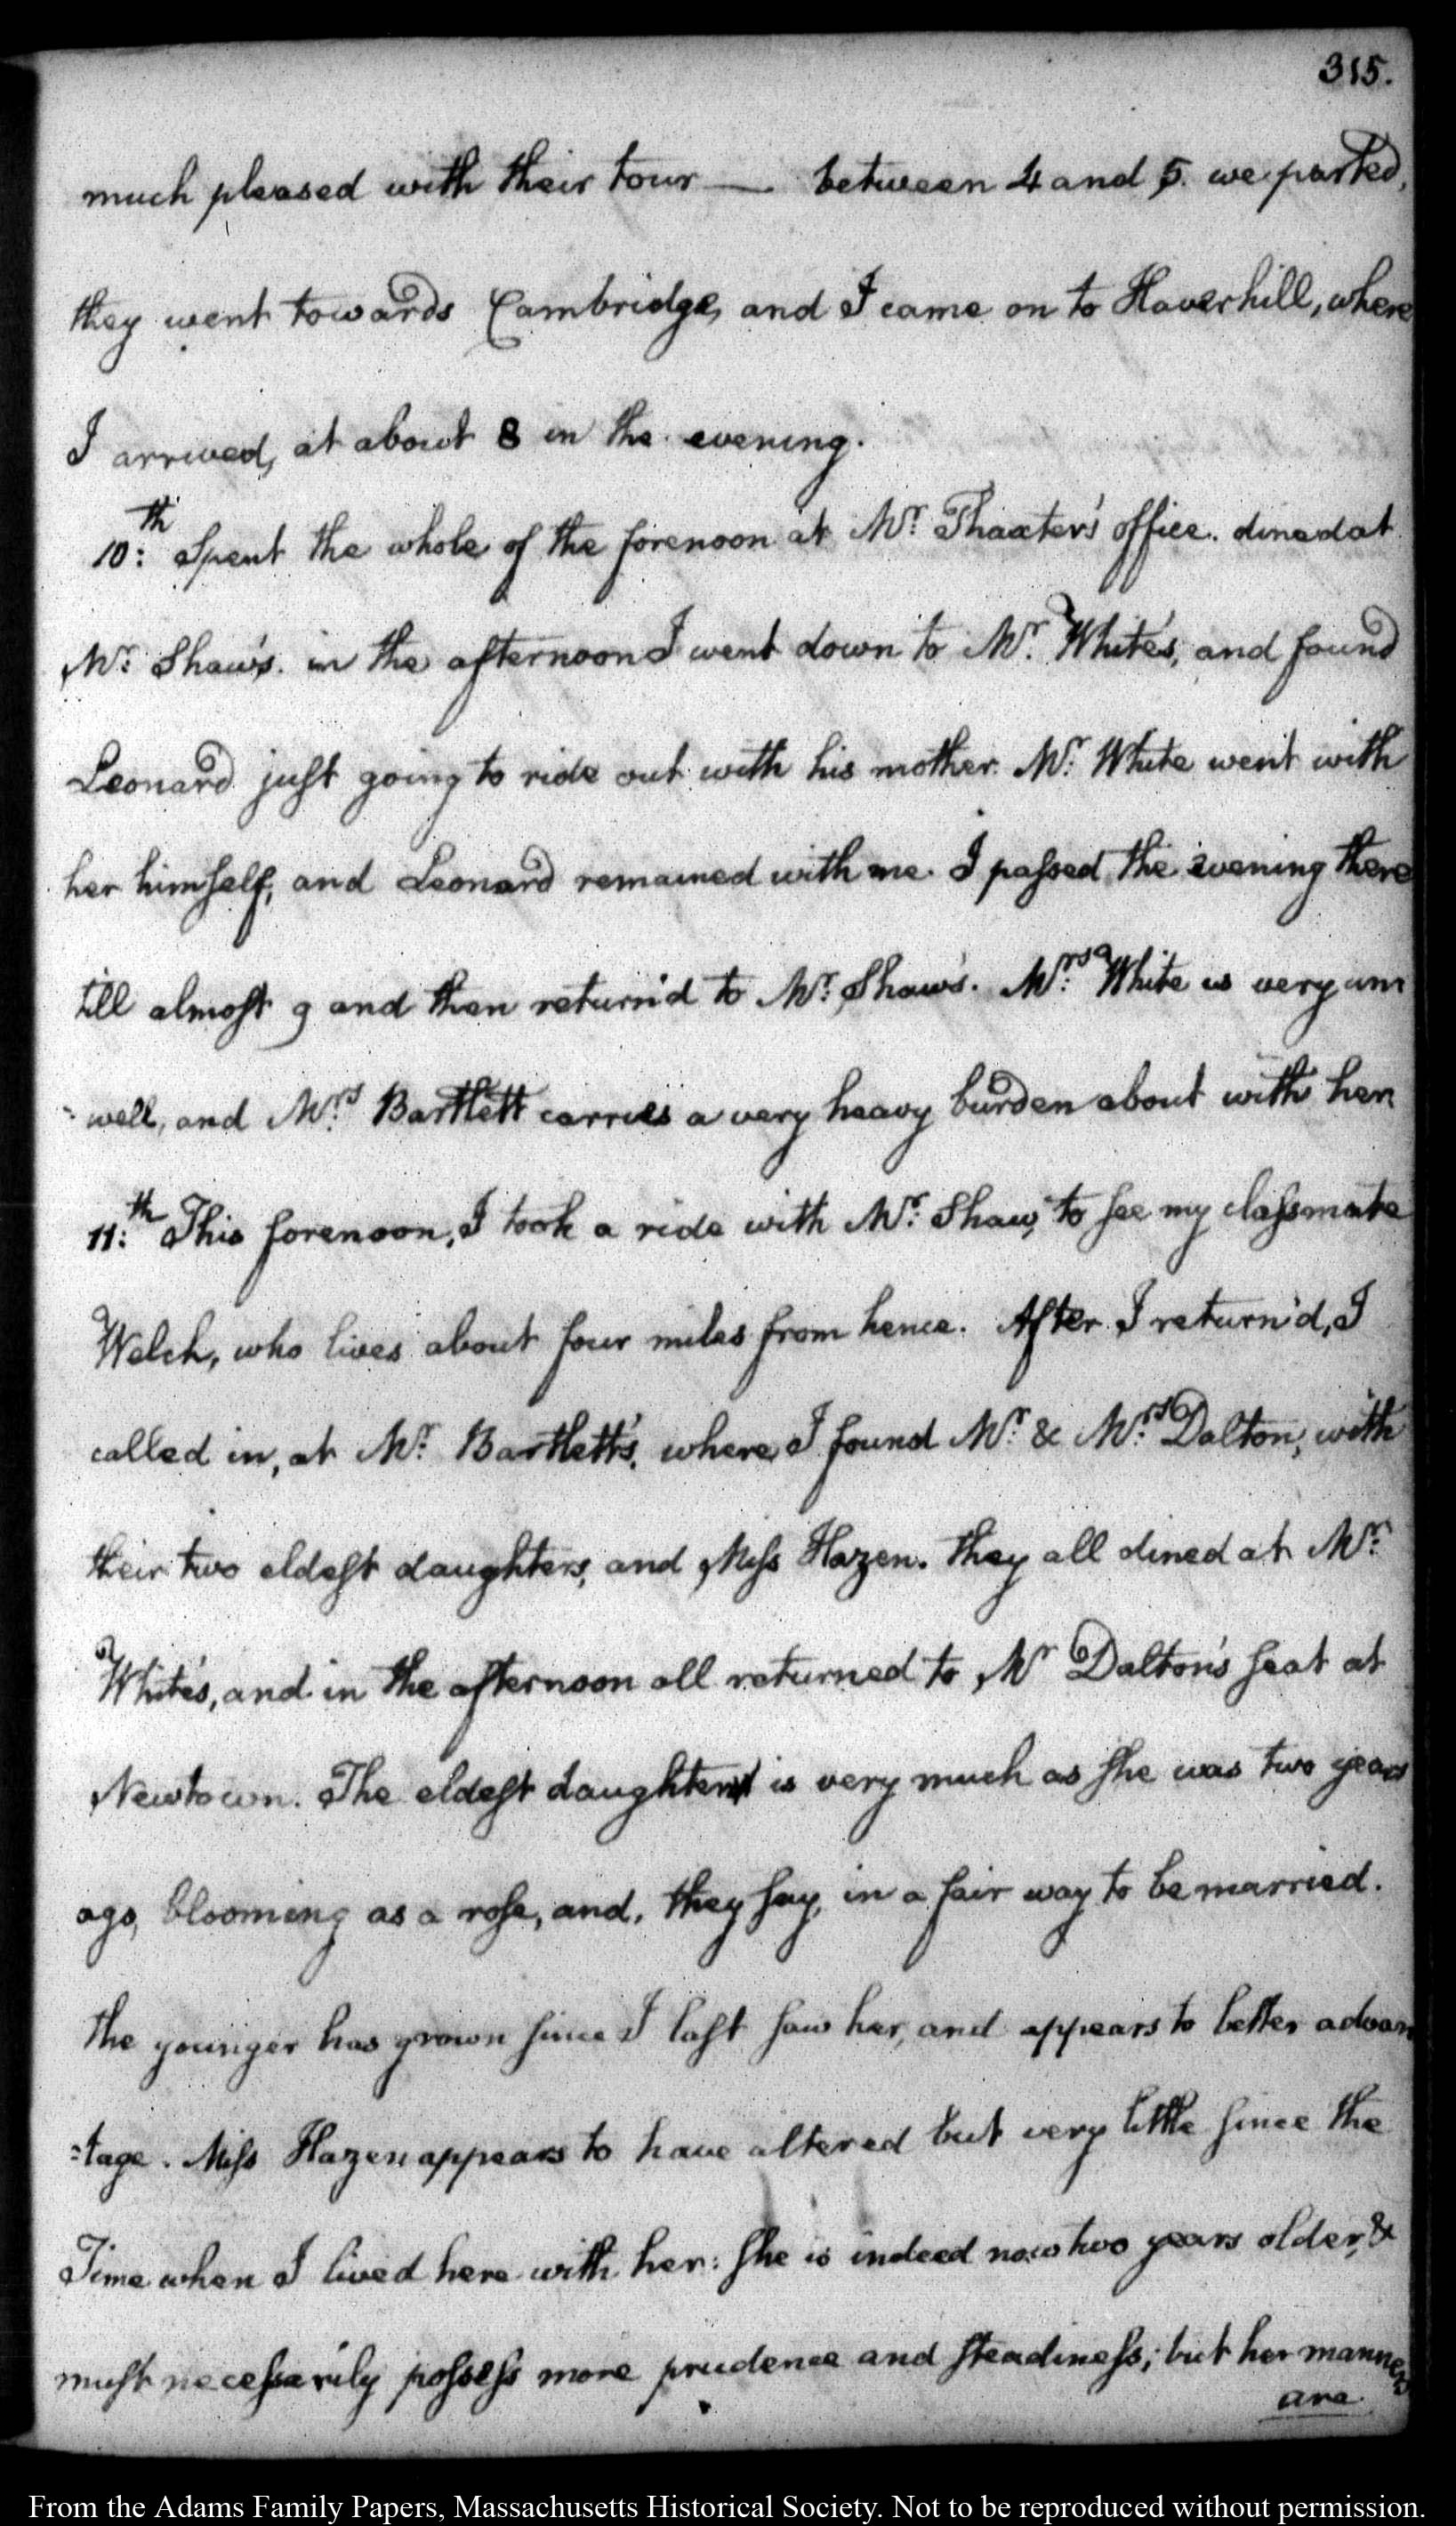 315.
much pleased with their tour —. between 4 and 5. we parted,
they went towards Cambridge, and I came on to Haverhill, where
I arrived, at about 8 in the evening.
10:th Spent the whole of the forenoon at Mr. Thaxter's office. dined at
Mr. Shaw's. in the afternoon I went down to Mr. White's, and found
Leonard just going to ride out with his mother. Mr. White went with
her himself, and Leonard remained with me. I passed the evening there
till almost 9 and then return'd to Mr. Shaw's. Mrs. White is very un
-well, and Mrs. Bartlett carries a very heavy burden about with her.
11:th This forenoon, I took a ride with Mr. Shaw, to see my classmate
Welch, who lives about four miles from hence. After I return'd, I
called in, at Mr. Bartlett's, where I found Mr. & Mrs. Dalton, with
their two eldest daughters, and Miss Hazen. they all dined at Mr.
White's, and in the afternoon all returned to Mr Dalton's seat at
Newtown. The eldest daughter is very much as she was two years
ago, blooming as a rose, and, they say, in a fair way to be married.
the younger has grown since I last saw her, and appears to better advan
=tage. Miss Hazen appears to have altered but very little since the
Time when I lived here with her: she is indeed now two years older, &
must necessarily possess more prudence and steadiness; but her manners
are
From the Adams Family Papers, Massachusetts Historical Society. Not to be reproduced without permission.